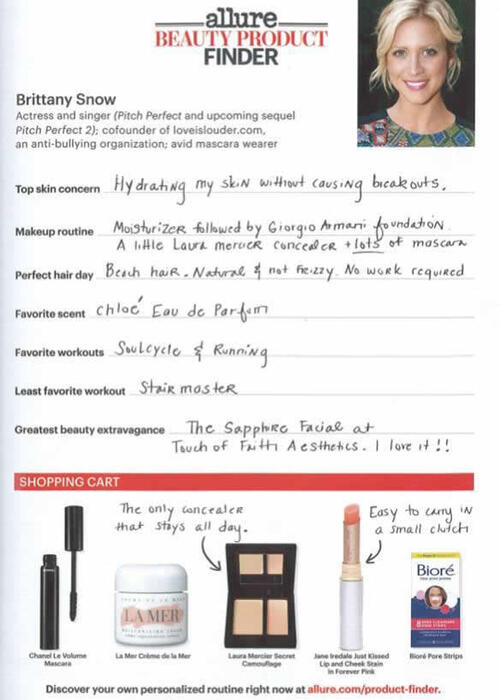 allure
BEAUTY PRODUCT
FINDER
Brittany Snow
Actress and singer (Pitch Perfect and upcoming sequel
Pitch Perfect 2); cofounder of loveislouder.com,
an anti-bullying organization; avid mascara wearer
Top skin concern Hydrating my skin without causing breakouts.
Makeup routine Moisturizer followed by Giorgio Armani foundation.
A little Laura mercier concealer + lots of mascara
Perfect hair day Beach hair. Natural & not frizzy. No work required
Favorite scent Chloé Eau de Parfum
Favorite workouts Soulcycle & Running
Least favorite workout Stair master
Greatest beauty extravagance The Sapphire Facial at
Touch of Faith Aesthetics. I love it!!
SHOPPING CART
The only concealer
that stays all day.
Easy to carry in
a small clutch
LA MER
Bioré
Chanel Le Volume
Mascara
La Mer Crème de la Mer
Laura Mercier Secret
Camouflage
Jane Iredale Just Kissed
Lip and Cheek Stain
in Forever Pink
Bioré Pore Strips
Discover your own personalized routine right now at allure.com/product-finder.